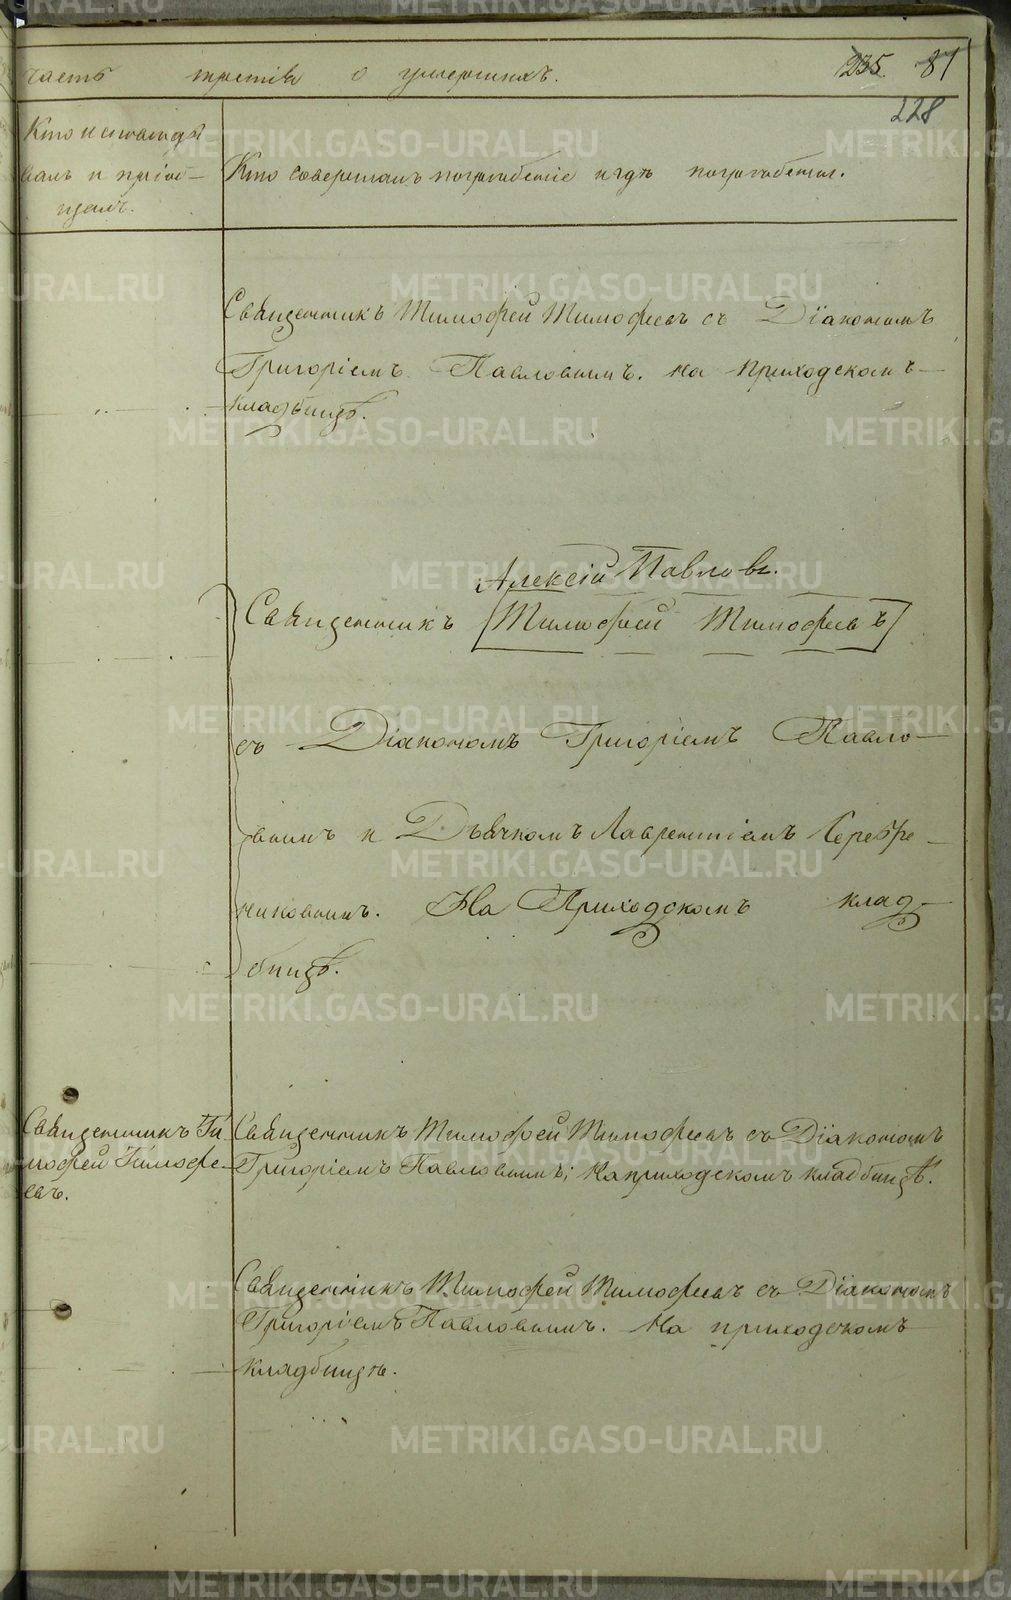 часть третія о умершихъ. 235. 81
228
Кто исповѣды
валъ и пріоб-
щалъ.
Кто совершалъ погребеніе и гдѣ погребены.
Священникъ Тимофей Тимофеевъ съ Діакономъ
Григоріемъ Павловымъ. На приходскомъ
кладбищѣ.
Алексій Павловъ.
Священникъ [Тимофей Тимофеевъ]
съ Діакономъ Григоріемъ Павло-
вымъ и Дьячкомъ Лаврентіемъ Серебре-
никовымъ. На Приходскомъ клад-
бищѣ.
Священникъ Ти
мофей Тимофе-
евъ.
Священникъ Тимофей Тимофеевъ съ Діакономъ
Григоріемъ Павловымъ; На приходскомъ кладбищѣ.
Священникъ Тимофей Тимофеевъ съ Діакономъ
Григоріемъ Павловымъ. На приходскомъ
кладбищѣ.
METRIKI.GASO-URAL.RU